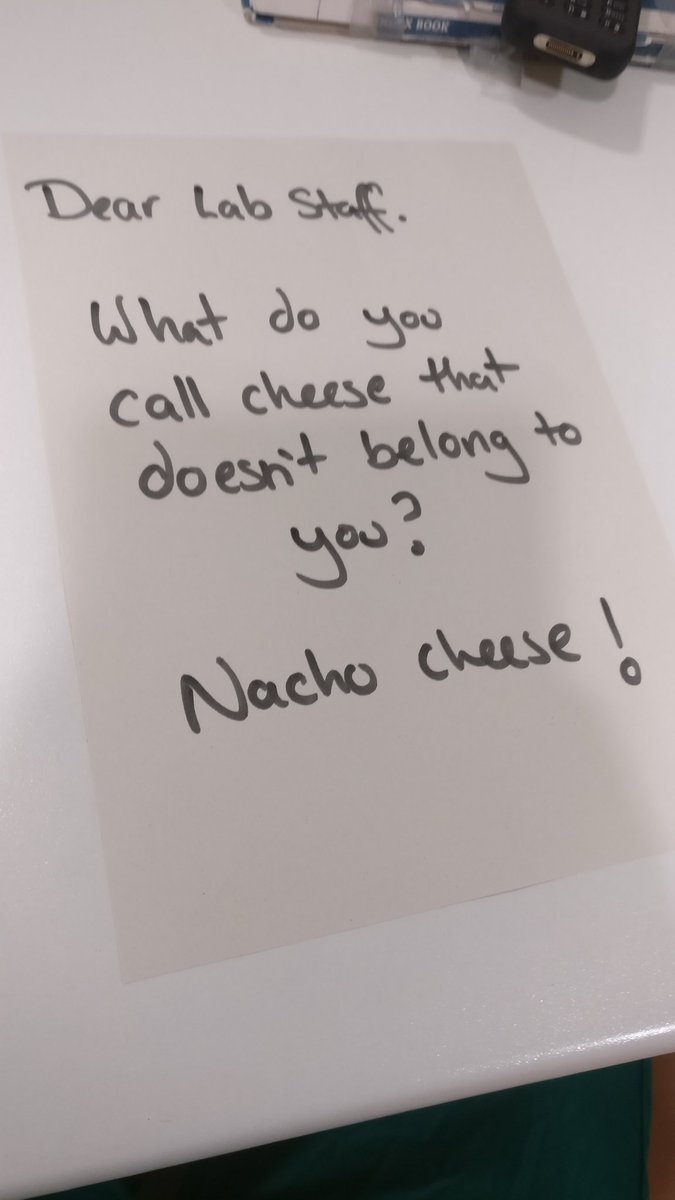 X BOOK
Dear Lab Staff.
What do you
call cheese that
doesn't belong to
you?
Nacho cheese!